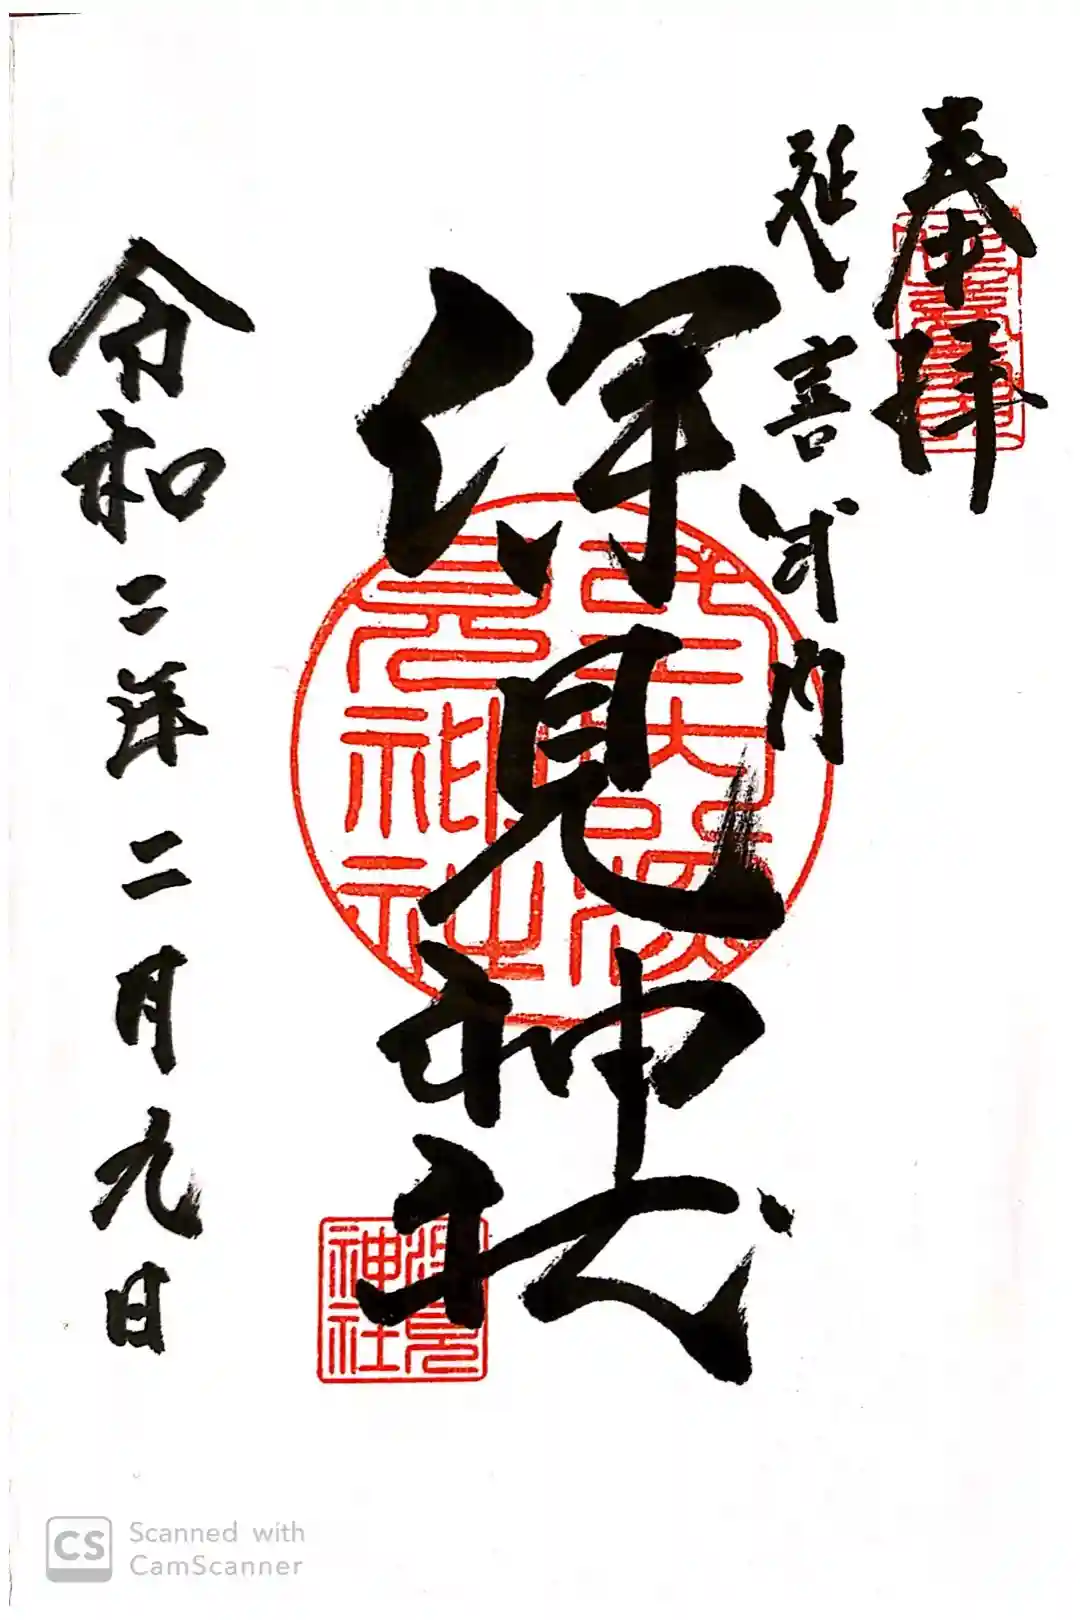 奉拝
延喜式内
深見神社
深見神社
令和二年二月九日
CS Scanned with
CamScanner